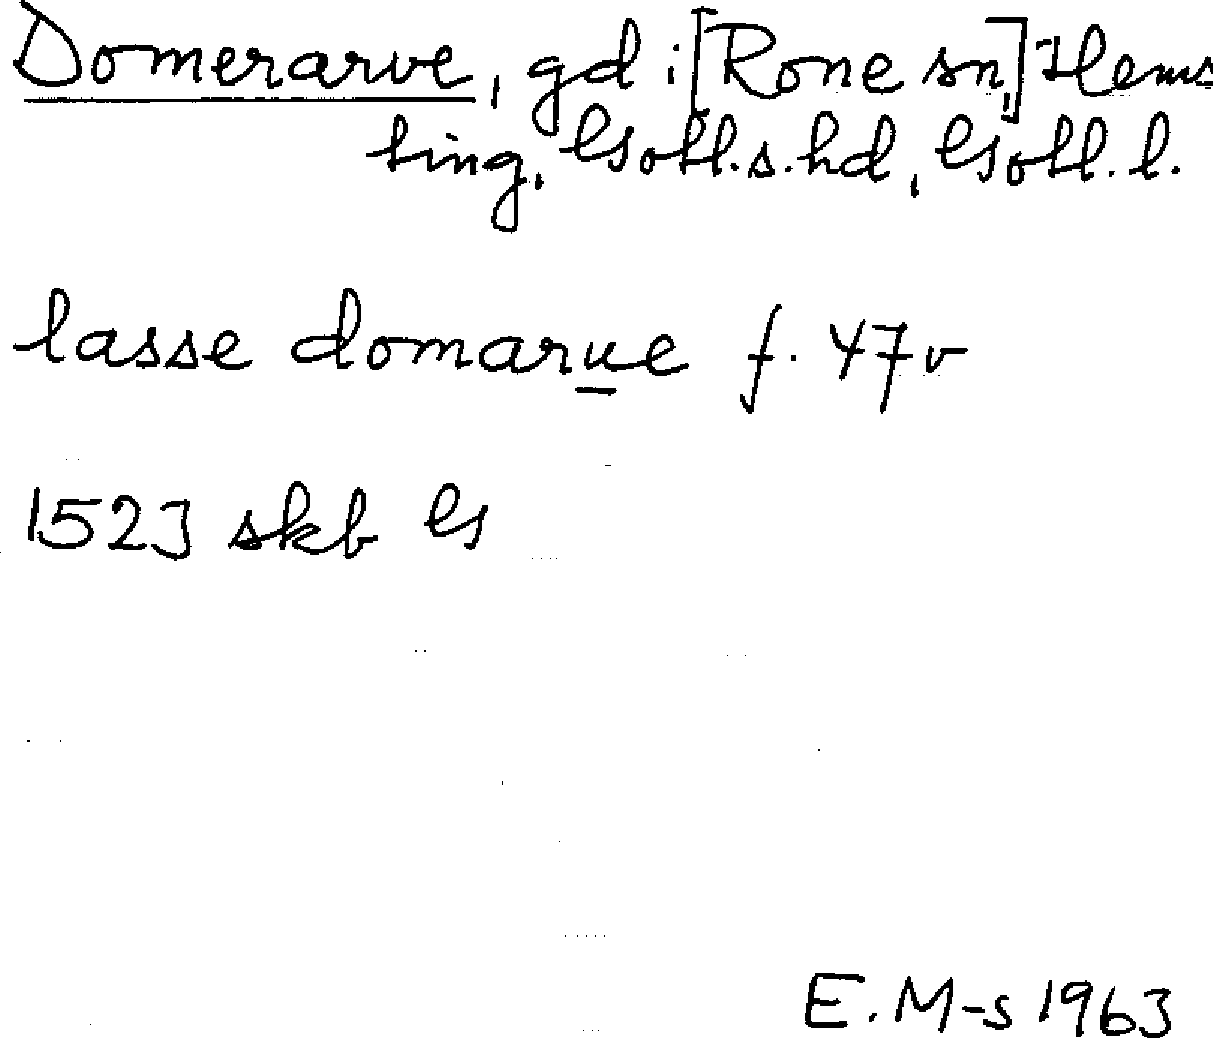 Domerarve, gd i [Rone sn,] Hems
ting, Gotl.s.hd, Gotl.l.
lasse domarue f. 47v
1523 skb G
E.M-s 1963